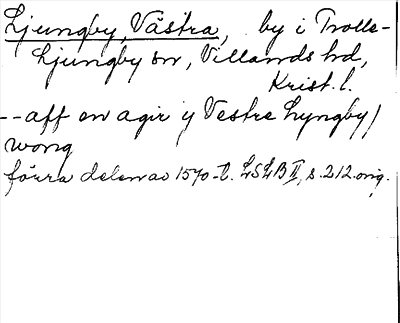 Ljungby, Västra, by i Trolle-
Ljungby sn, Villands hd,
Krist. l.
--aff en agir y Vestre Lyngby/
wong
förra delen av 1570-t. LSLB II, s. 212. orig.